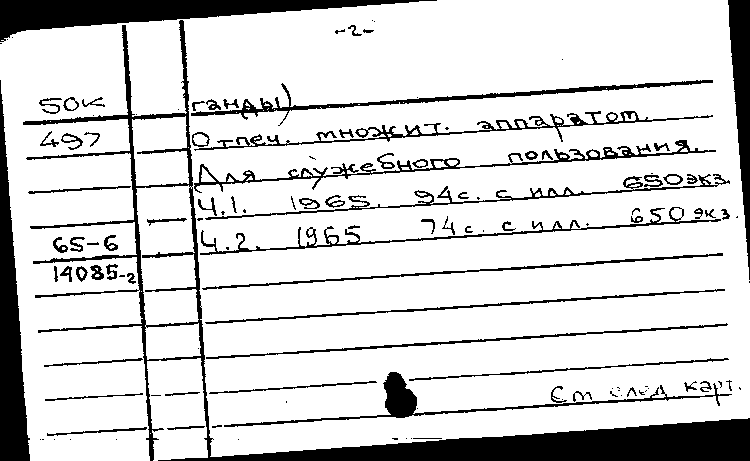 -2-
50к ганды)
497 Отпеч. множит. аппаратом.
Для служебного пользования.
Ч.1. 1965. 94с. с илл. 650экз.
65-6 Ч.2. 1965 74с. с илл. 650экз.
14085-2
См след карт.